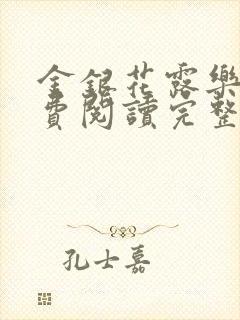 金銀花露樂
費閱讀完整
孔士嘉